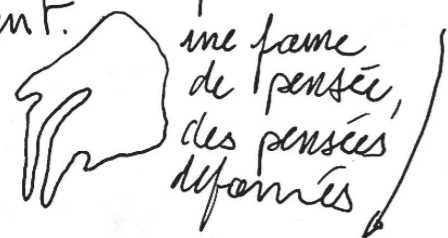 ent.
une forme
de pensée,
des pensées
déformés